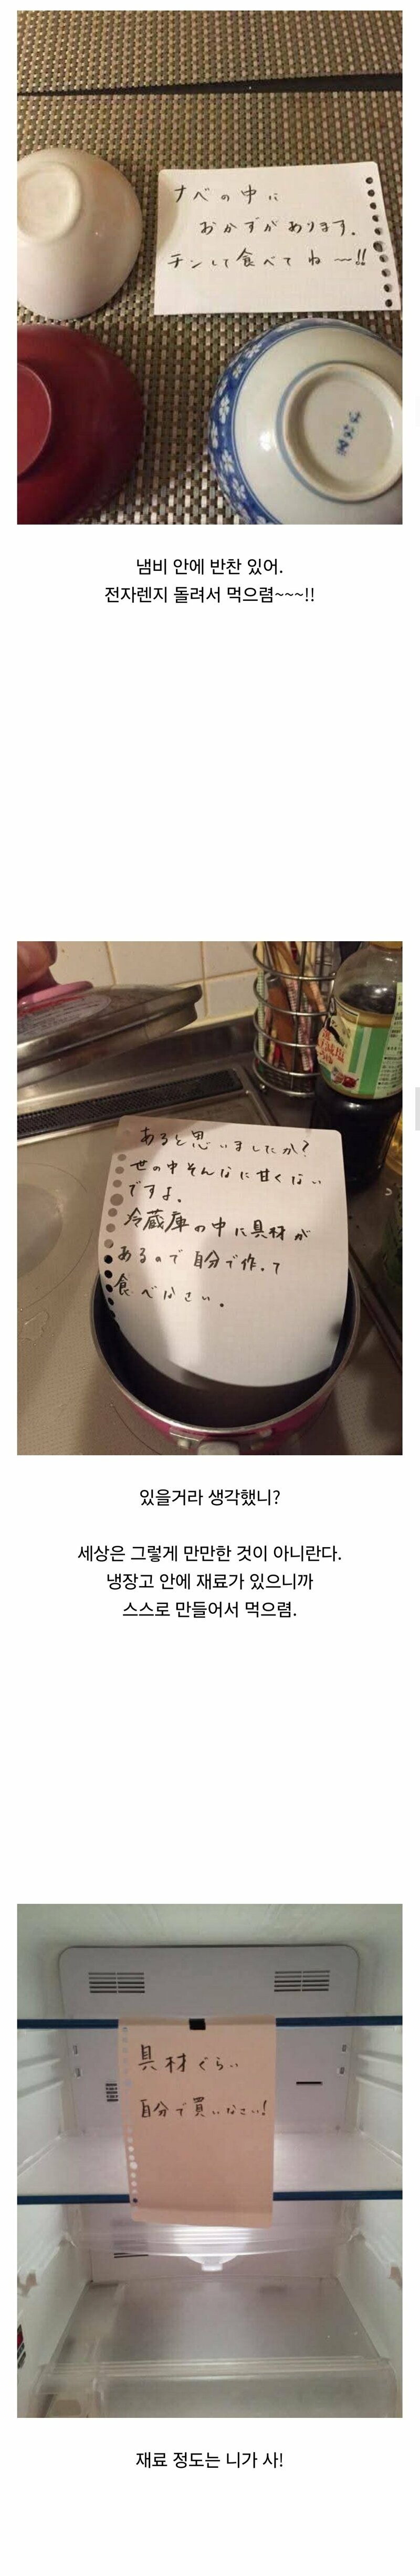 ナベの中に
おかずがあります。
チンして食べてね～!!
냄비 안에 반찬 있어.
전자렌지 돌려서 먹으렴~~~!!
あると思いましたか?
世の中そんなに甘くない
ですよ。
冷蔵庫の中に具材が
あるので自分で作って
食べなさい。
있을거라 생각했니?
세상은 그렇게 만만한 것이 아니란다.
냉장고 안에 재료가 있으니까
스스로 만들어서 먹으렴.
具材ぐらい
自分で買いなさい!
재료 정도는 니가 사!